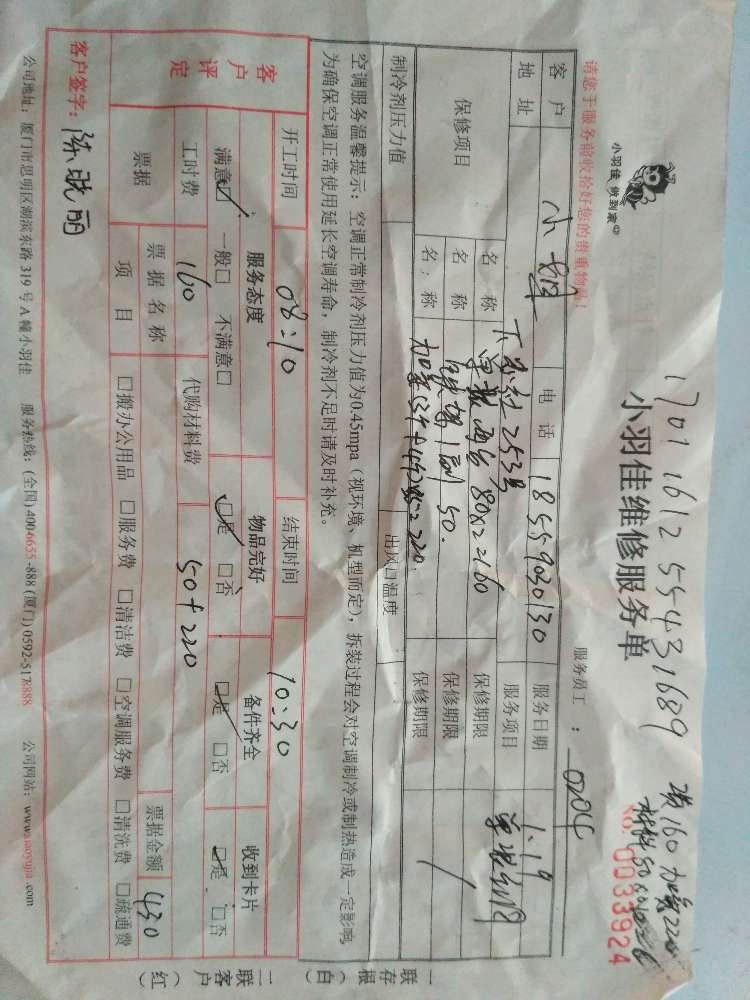 1701 1612 55431689
小羽佳 做到家
小羽佳维修服务单
160 加氟220
材料50
No: 0033924
请您于服务前收拾好您的贵重物品!
服务员工 : 0204
客户 电话 18559030130 服务日期 1.19
地址 253号 服务项目
保修项目 名称 两台 80x2=160 保修期限
名称 1副 50. 保修期限
名称 加氟 220. 保修期限
制冷剂压力值 出风口温度
空调服务温馨提示:空调正常制冷剂压力值为0.45mpa(视环境、机型而定),拆装过程会对空调制冷或制热造成一定影响,
为确保空调正常使用延长空调寿命,制冷剂不足时请及时补充。
开工时间 08:10 结束时间 10:30
客户评定 服务态度 物品完好 备件齐全 收到卡片
满意☑ 一般□ 不满意□ ☑是 □否 ☑是 □否 ☑是 □否
工时费 160 代购材料费 50+220
票据 票据名称 票据金额 430
项目 □搬办公用品 □服务费 □清洁费 □空调服务费 □清洗费 □疏通费
客户签字: 陈晓丽
公司地址:厦门市思明区湖滨东路 319 号 A 幢小羽佳 服务热线:(全国)400-6655-888 (厦门) 0592-5178888 公司网站:www.xiaoyujia.com
一联存根(白)
二联客户(红)